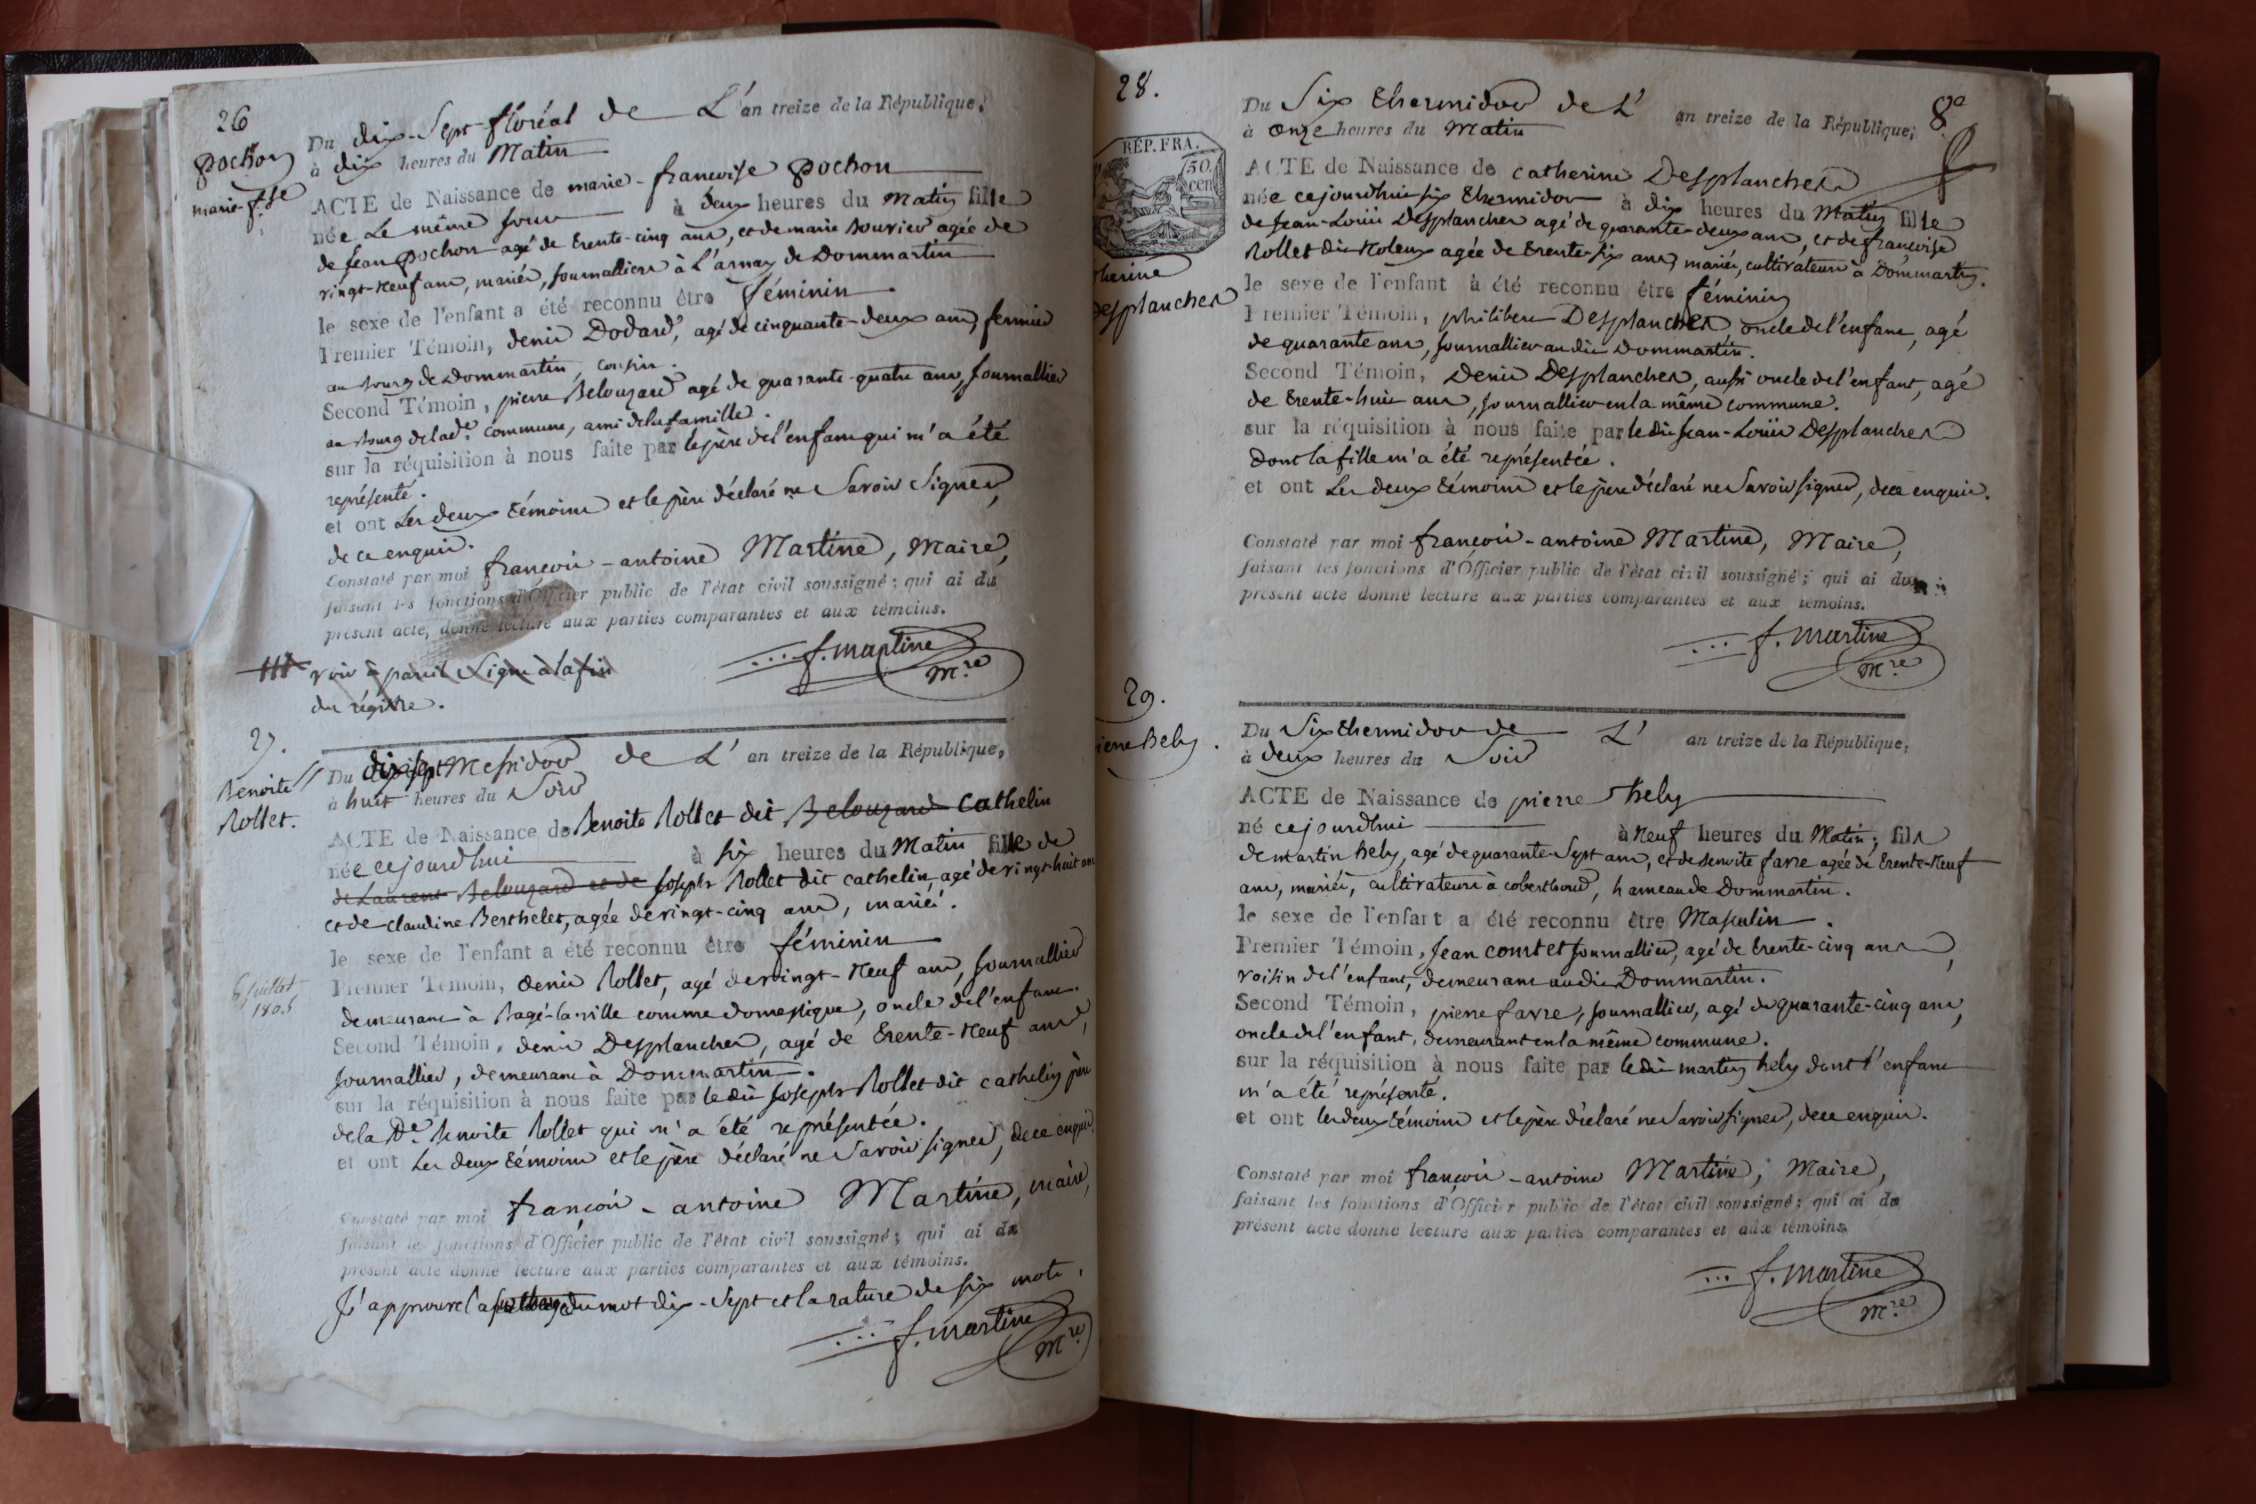 26
pochon
marie-f.se
Du dix-Sept floréal de L'an treize de la République,
à dix heures du Matin
ACTE de Naissance de marie-francoise pochon
née Le même Jour à deux heures du Matin fille
de Jean pochon agé de trente-cinq ans, et de marie Bouvier agée de
vingt-neuf ans, mariés, Journalliers à L'arnay de Dommartin
le sexe de l'enfant a été reconnu être féminin
Premier Témoin, denis Dodard, agé de cinquante-deux ans, fermier
au bourg de Dommartin, cousin.
Second Témoin, pierre Belouzard agé de quarante-quatre ans, Journallier
au bourg de lad.e commune, ami de la famille.
sur la réquisition à nous faite par le père de l'enfant qui m'a été
représenté.
et ont Les deux témoins et le père déclaré ne Savoir Signer,
de ce enquis.
Constaté par moi françois-antoine Martine, Maire,
faisant les fonctions d'Officier public de l'état civil soussigné; qui ai du
présent acte, donné lecture aux parties comparantes et aux témoins.
f. martine
M.re
voir à pareil Signe à la fin
du régistre.
27.
Benoite
Rollet.
Du dix sept Messidor de L'an treize de la République,
à huit heures du Soir
ACTE de Naissance de Benoite Rollet dit Belouzard Cathelin
née cejourdhui à six heures du Matin fille de
de Laurent Belouzard et de Joseph Rollet dit cathelin, agé de vingt-huit ans
et de claudine Berthelet, agée de vingt-cinq ans, mariés.
le sexe de l'enfant a été reconnu être féminin
6 Juillet
1805
Premier Témoin, denis Rollet, agé de vingt-neuf ans, Journallier
demeurant à Bagé-la-ville comme domestique, oncle de l'enfant.
Second Témoin, denis Desplanches, agé de trente-neuf ans,
Journallier, demeurant à Dommartin.
sur la réquisition à nous faite par le dit Joseph Rollet dit cathelin père
de la d.e Benoite Rollet qui m'a été représentée.
et ont Les deux témoins et le père déclaré ne Savoir signer, de ce enquis.
Constaté par moi françois-antoine Martine, maire,
faisant les fonctions d'Officier public de l'état civil soussigné; qui ai du
présent acte donné lecture aux parties comparantes et aux témoins.
J'approuve la surcharge du mot dix-Sept et la rature de six mots.
f. martine
M.re
28.
8e
RÉP. FRA.
50
cen
therine
Desplanches
Du Six thermidor de L'an treize de la République,
à onze heures du Matin
ACTE de Naissance de catherine Desplanches
née cejourdhui six thermidor à dix heures du Matin fille
de Jean-Louis Desplanches agé de quarante-deux ans, et de francoise
Rollet dit Koleux agée de trente-six ans, mariés, cultivateurs à Dommartin.
le sexe de l'enfant à été reconnu être féminin
Premier Témoin, philibert Desplanches oncle de l'enfant, agé
de quarante ans, Journallier au dit Dommartin.
Second Témoin, Denis Desplanches, aussi oncle de l'enfant, agé
de trente-huit ans, Journallier en la même commune.
sur la réquisition à nous faite par le dit Jean-Louis Desplanches
dont la fille m'a été représentée.
et ont Les deux témoins et le père déclaré ne Savoir signer, de ce enquis.
Constaté par moi françois-antoine Martine, Maire,
faisant les fonctions d'Officier public de l'état civil soussigné; qui ai du
présent acte donné lecture aux parties comparantes et aux témoins.
f. martine
M.re
29.
ierre Bely.
Du Six thermidor de L'an treize de la République,
à deux heures du Soir
ACTE de Naissance de pierre hely
né cejourdhui à neuf heures du Matin, fils
de martin hely, agé de quarante-Sept ans, et de benoite favre agée de trente-neuf
ans, mariés, cultivateurs à coberthoud, hameau de Dommartin.
le sexe de l'enfant a été reconnu être Masculin.
Premier Témoin, Jean comtet Journallier, agé de trente-cinq ans,
voisin de l'enfant, demeurant au dit Dommartin.
Second Témoin, pierre favre, Journallier, agé de quarante-cinq ans,
oncle de l'enfant, demeurant en la même commune.
sur la réquisition à nous faite par le dit martin hely dont l'enfant
m'a été représenté.
et ont les deux témoins et le père déclaré ne Savoir signer, de ce enquis.
Constaté par moi françois-antoine Martine, Maire,
faisant les fonctions d'Officier public de l'état civil soussigné; qui ai du
présent acte donné lecture aux parties comparantes et aux témoins.
f. martine
M.re